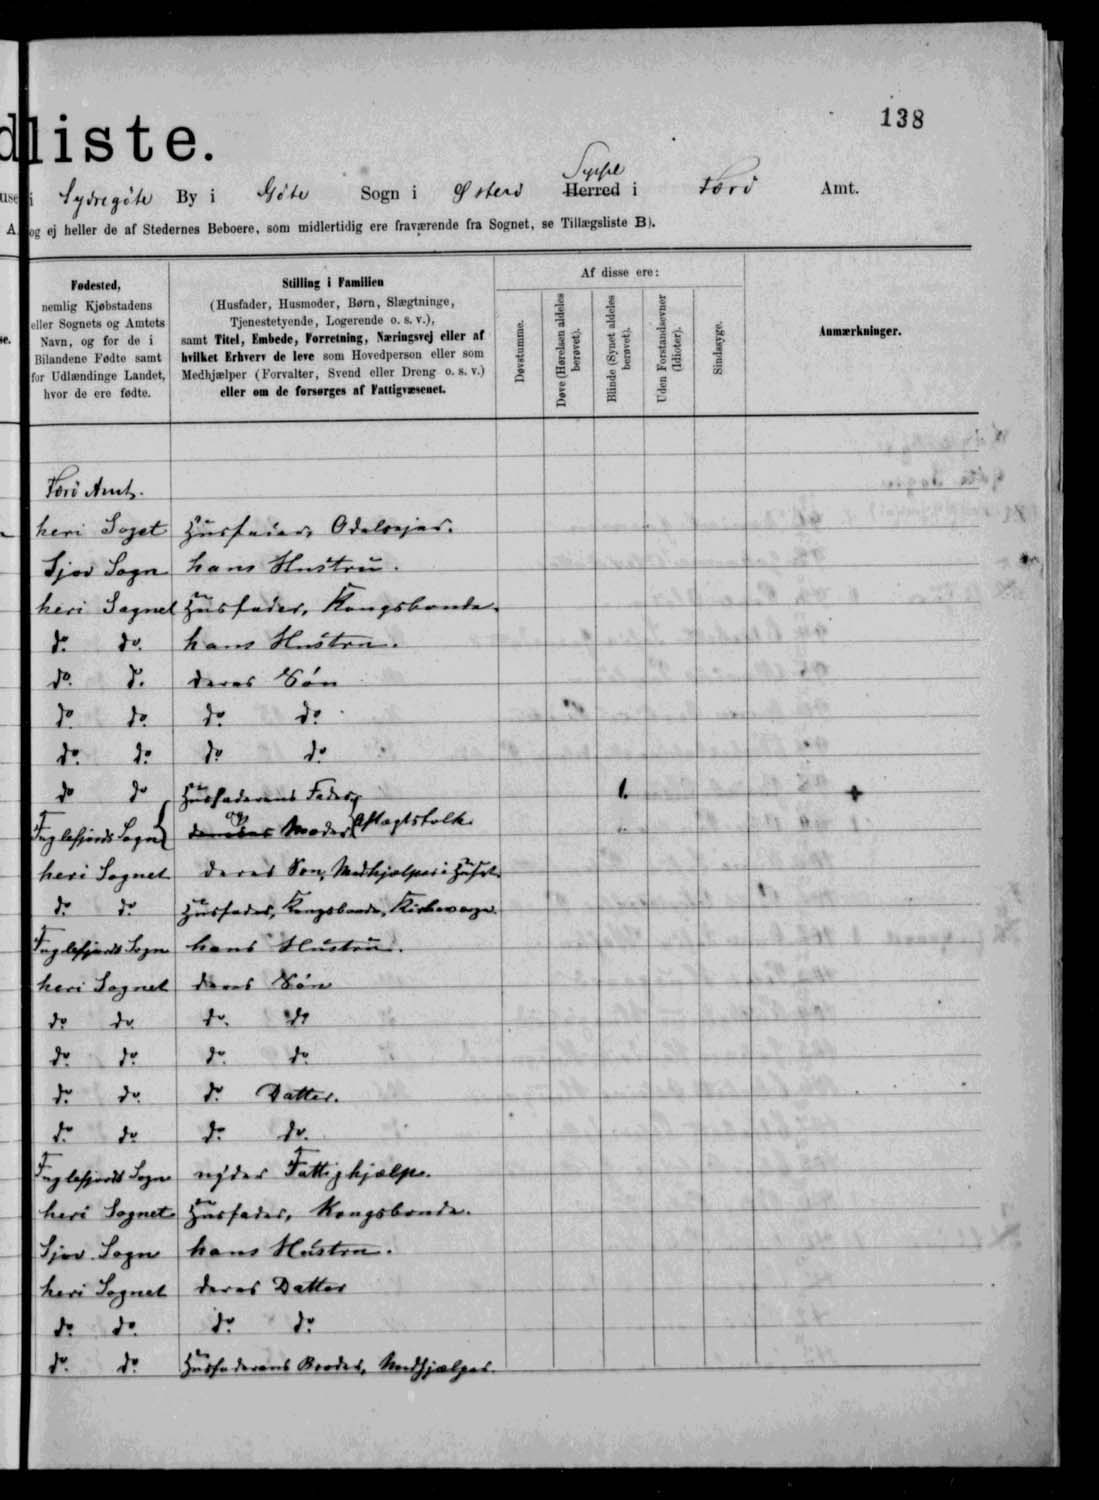 138
dliste.
use i Sydregöte By i Göte Sogn i Østerö Syssel Herred i Færö Amt.
A. og ej heller de af Stedernes Beboere, som midlertidig ere fraværende fra Sognet, se Tillægsliste B).
Fødested,
nemlig Kjøbstadens
eller Sognets og Amtets
Navn, og for de i
Bilandene Fødte samt
for Udlændinge Landet,
hvor de ere fødte.
Stilling i Familien
(Husfader, Husmoder, Børn, Slægtninge,
Tjenestetyende, Logerende o. s. v.),
samt Titel, Embede, Forretning, Næringsvej eller af
hvilket Erhverv de leve som Hovedperson eller som
Medhjælper (Forvalter, Svend eller Dreng o. s. v.)
eller om de forsørges af Fattigvæsenet.
Af disse ere:
Døvstumme.
Døve (Hørelsen aldeles
berøvet).
Blinde (Synet aldeles
berøvet).
Uden Forstandsevner
(Idioter).
Sindssyge.
Anmærkninger.
Færö Amt.
heri Soget Husfader, Odelsejer.
Sjov Sogn hans Hustru.
heri Sognet Husfader, Kongsbonde.
do. do. hans Hustru.
do. do. deres Søn
do. do. do. do.
do. do. do. do.
do do Husfaderens Fader, 1. +
Fuglefjords Sogn og Moder Aftægtsfolk
heri Sognet deres Søn, Medhjælper i Huset.
do. do. Husfader, Kongsbonde, Kirkeværge.
Fuglefjords Sogn hans Hustru.
heri Sognet deres Søn
do. do. do. do
do. do. do. do
do. do. do. Datter.
do. do. do. do.
Fuglefjords Sogn nyder Fattighjælp.
heri Sognet Husfader, Kongsbonde.
Sjov Sogn hans Hustru.
heri Sognet deres Datter
do. do. do. do.
do. do. Husfaderens Broder, Medhjælper.